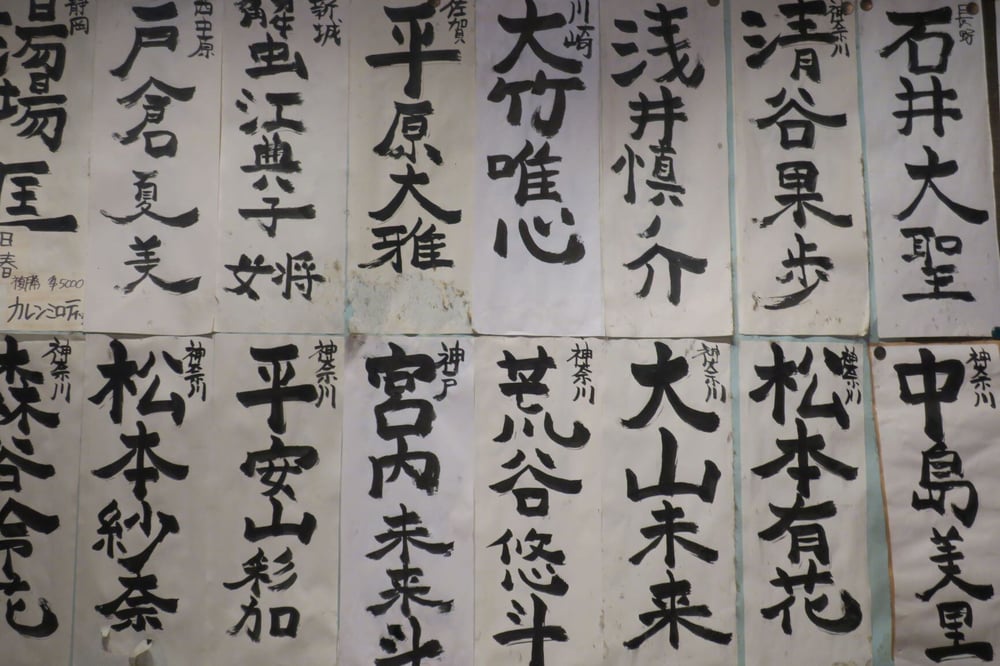 長野
石井大聖
神奈川
清谷果歩
浅井慎ノ介
川崎
大竹唯心
佐賀
平原大雅
新城
蟹江典子
女将
西中原
戸倉夏美
静岡
湯場匡
¥5000
カレンミロティ
神奈川
中島美里
神奈川
松本有花
神奈川
大山未来
神奈川
荒谷悠斗
神戸
宮内未来斗
神奈川
平安山彩加
神奈川
松本紗奈
神奈川
森谷